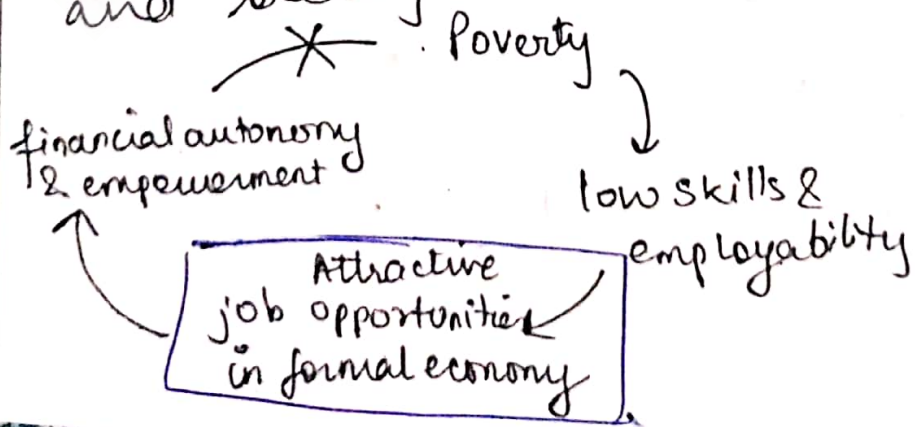 and
Poverty
financial autonomy
& empowerment
low skills &
employability
Attractive
job opportunities
in formal economy